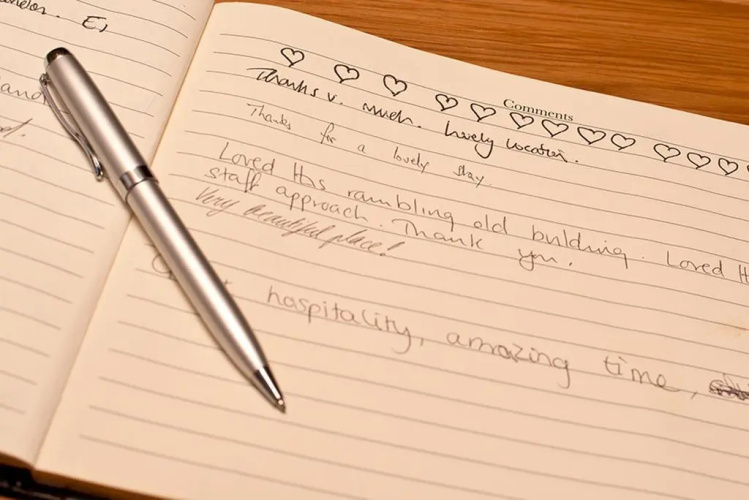 Comments
Thanks v. much. Lovely location.
Thanks for a lovely stay.
Loved this rambling old building. Loved
staff approach. Thank you.
Very beautiful place!
hospitality, amazing time,